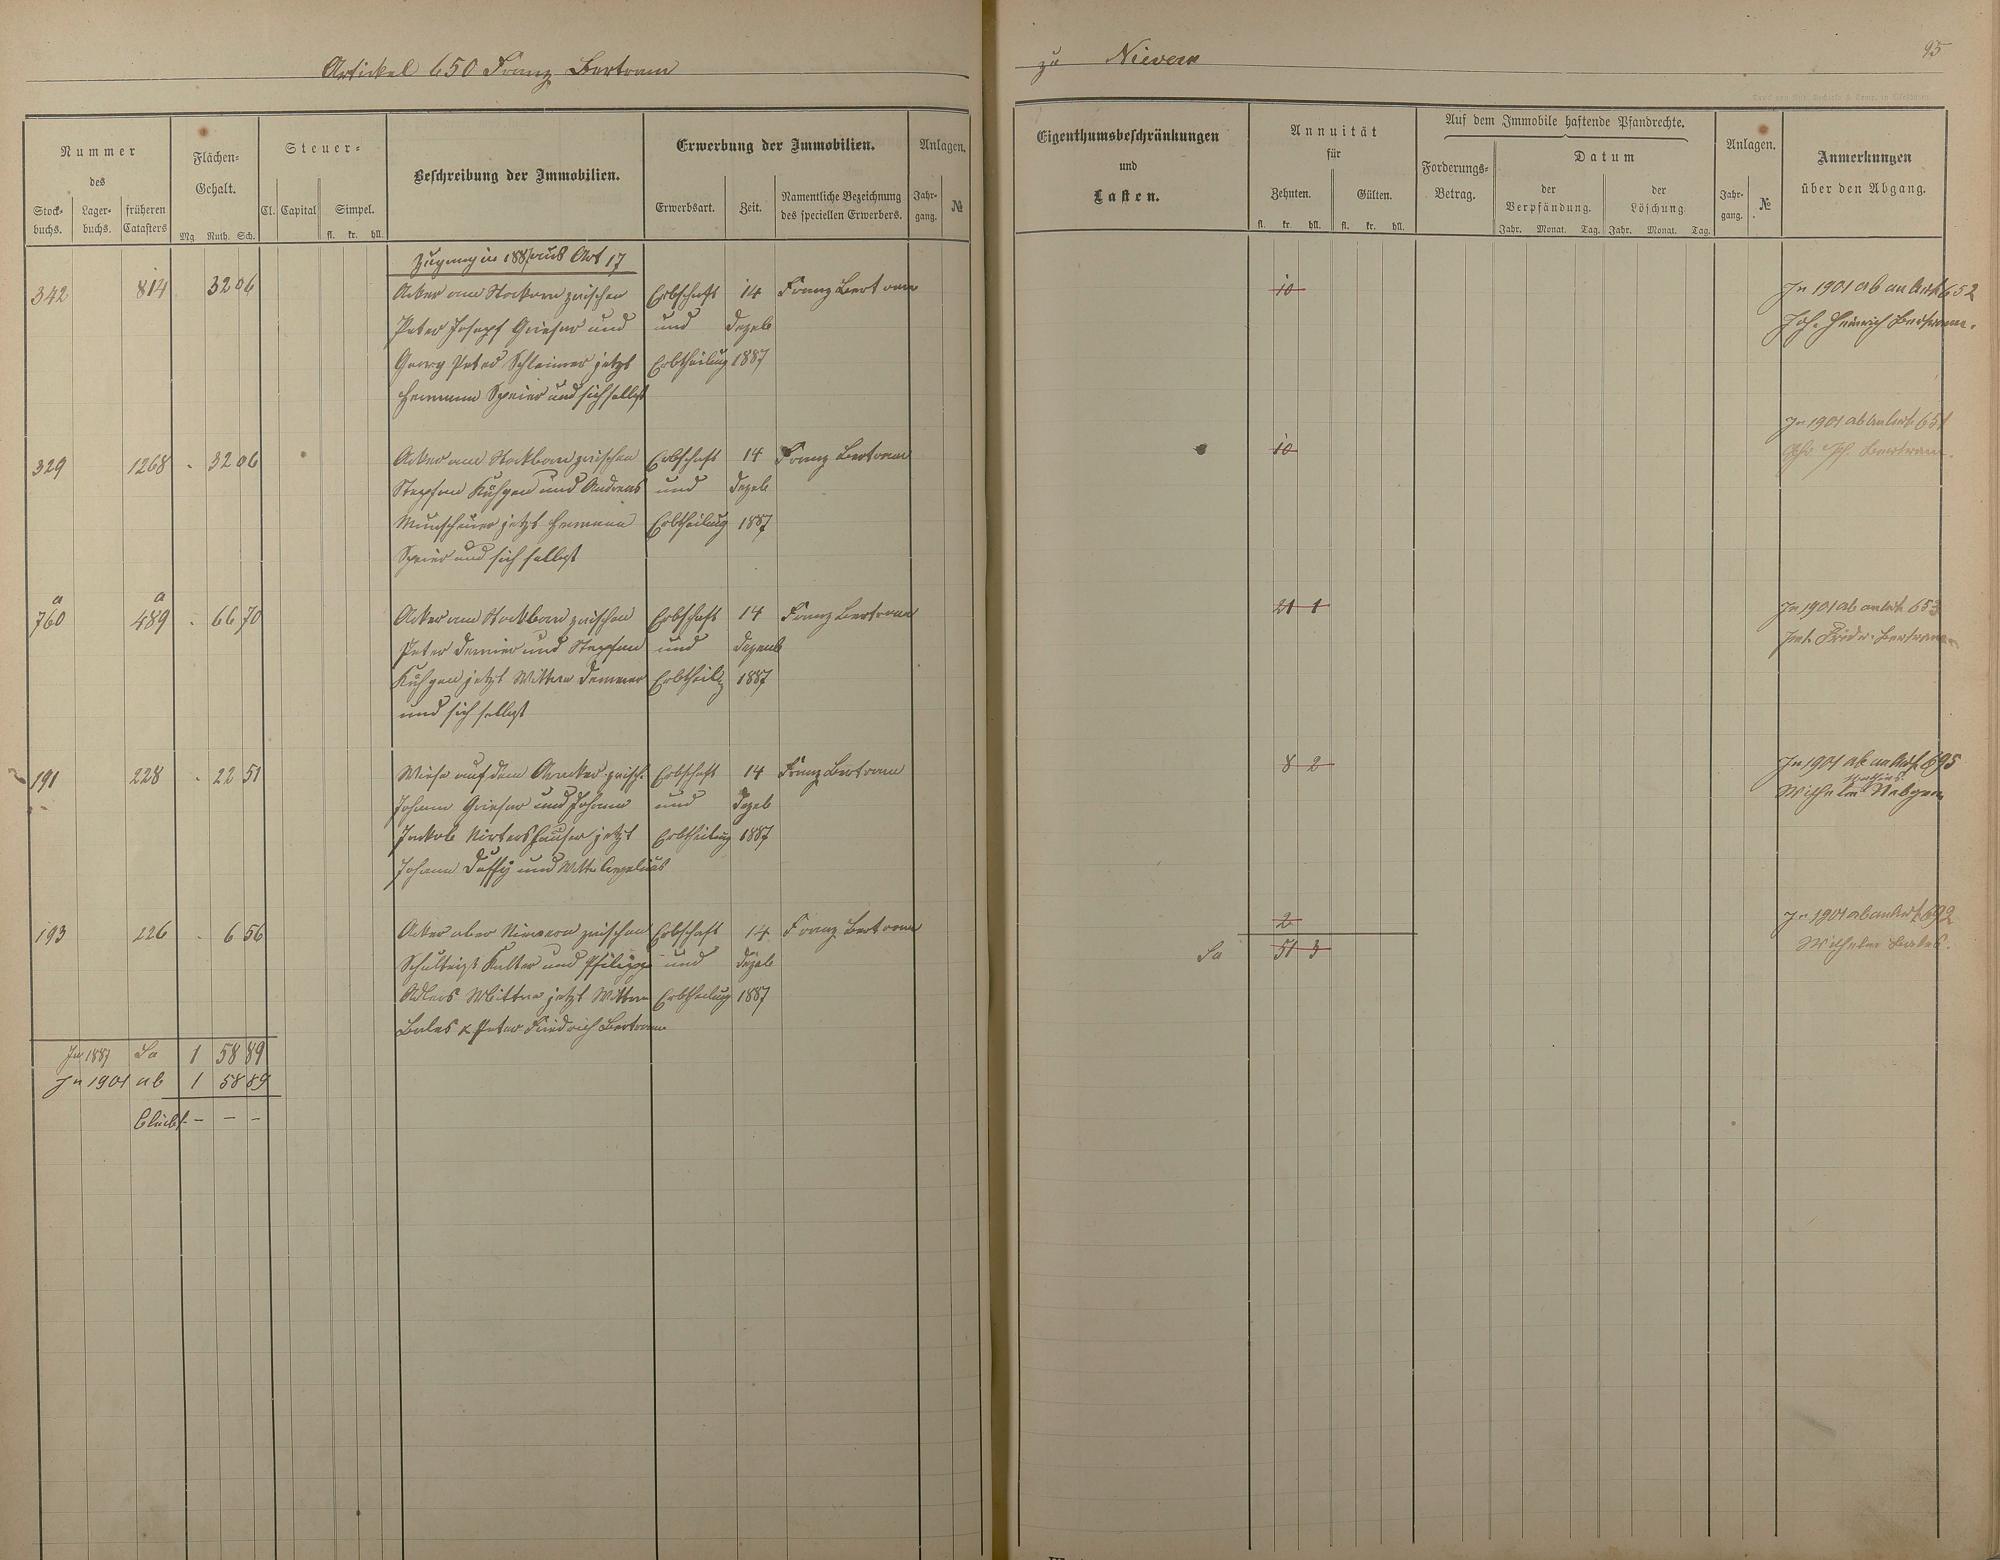 Artickel 650 Franz Bertram
zu Nievern
95
Nummer
des
Stock-
buchs.
Lager-
buchs.
früheren
Catasters
Flächen-
Gehalt.
Mg. Ruth. Sch.
Steuer-
Cl. Capital Simpel.
fl. kr. hll.
Beschreibung der Immobilien.
Erwerbung der Immobilien.
Erwerbsart. Zeit.
Namentliche Bezeichnung
des speciellen Erwerbers.
Anlagen.
Jahr-
gang.
№
Eigenthumsbeschränkungen
und
Lasten.
Annuität
für
Zehnten. Gülten.
fl. kr. hll. fl. kr. hll.
Auf dem Immobile haftende Pfandrechte.
Forderungs-
Betrag.
Datum
der
Verpfändung.
der
Löschung.
Jahr. Monat. Tag. Jahr. Monat. Tag.
Anlagen.
Jahr-
gang.
№
Anmerkungen
über den Abgang.
Zugang in 1887 aus Art 17
342 814 32 06 Acker am zwischen Erbschaft 14 Franz Bertram 10 In 1901 ab an Art 652
Peter Josepf Grieser und und Dezeb Joh. Heinrich Bertram.
Georg Peter Schleimer jetzt Erbtheilung 1887
Hermann Speier und sich selbst
329 1268 - 32 06 Acker am zwischen Erbschaft 14 Franz Bertram 10 In 1901 ab an Art 651
Steppan und Andreas und Dezeb Bertram.
jetzt Hermann Erbtheilung 1887
Speier und sich selbst
a a
760 489 - 66 70 Acker am zwischen Erbschaft 14 Franz Bertram 21 1 In 1901 ab an Art 653
Peter und Steppan und Dezemb Pet. Friedr. Bertram
jetzt Wittwe und 1887
und sich selbst
191 228 - 22 51 Wiese auf dem zwisch. Erbschaft 14 Franz Bertram 8 2 In 1901 ab an Art 695
Johann Grieser und Johann und Dezeb Wilhelm
Jackob jetzt Erbtheilung 1887
Johann und
193 226 - 6 56 Acker ober Nievern zwischen Erbschaft 14 Franz Bertram 2 In 1901 ab an Art 692
und Philipp und Dezeb Sa 51 3 Wilhelm Bales.
Adlers Wittwe jetzt Wittwe Erbtheilung 1887
Bales & Peter Friedrich Bertram
In 1887 Sa 1 58 89
In 1901 ab 1 58 89
Bleibt - - -